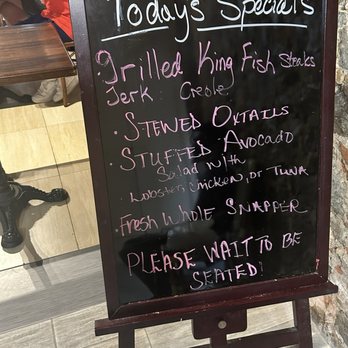 Todays Specials
Grilled King Fish Steaks
Jerk Creole
• STEWED OXTAILS
• STUFFED AVOCADO
Salad with
Lobster, Chicken, or TUNA
• Fresh Whole SNAPPER
PLEASE WAIT TO BE
SEATED!